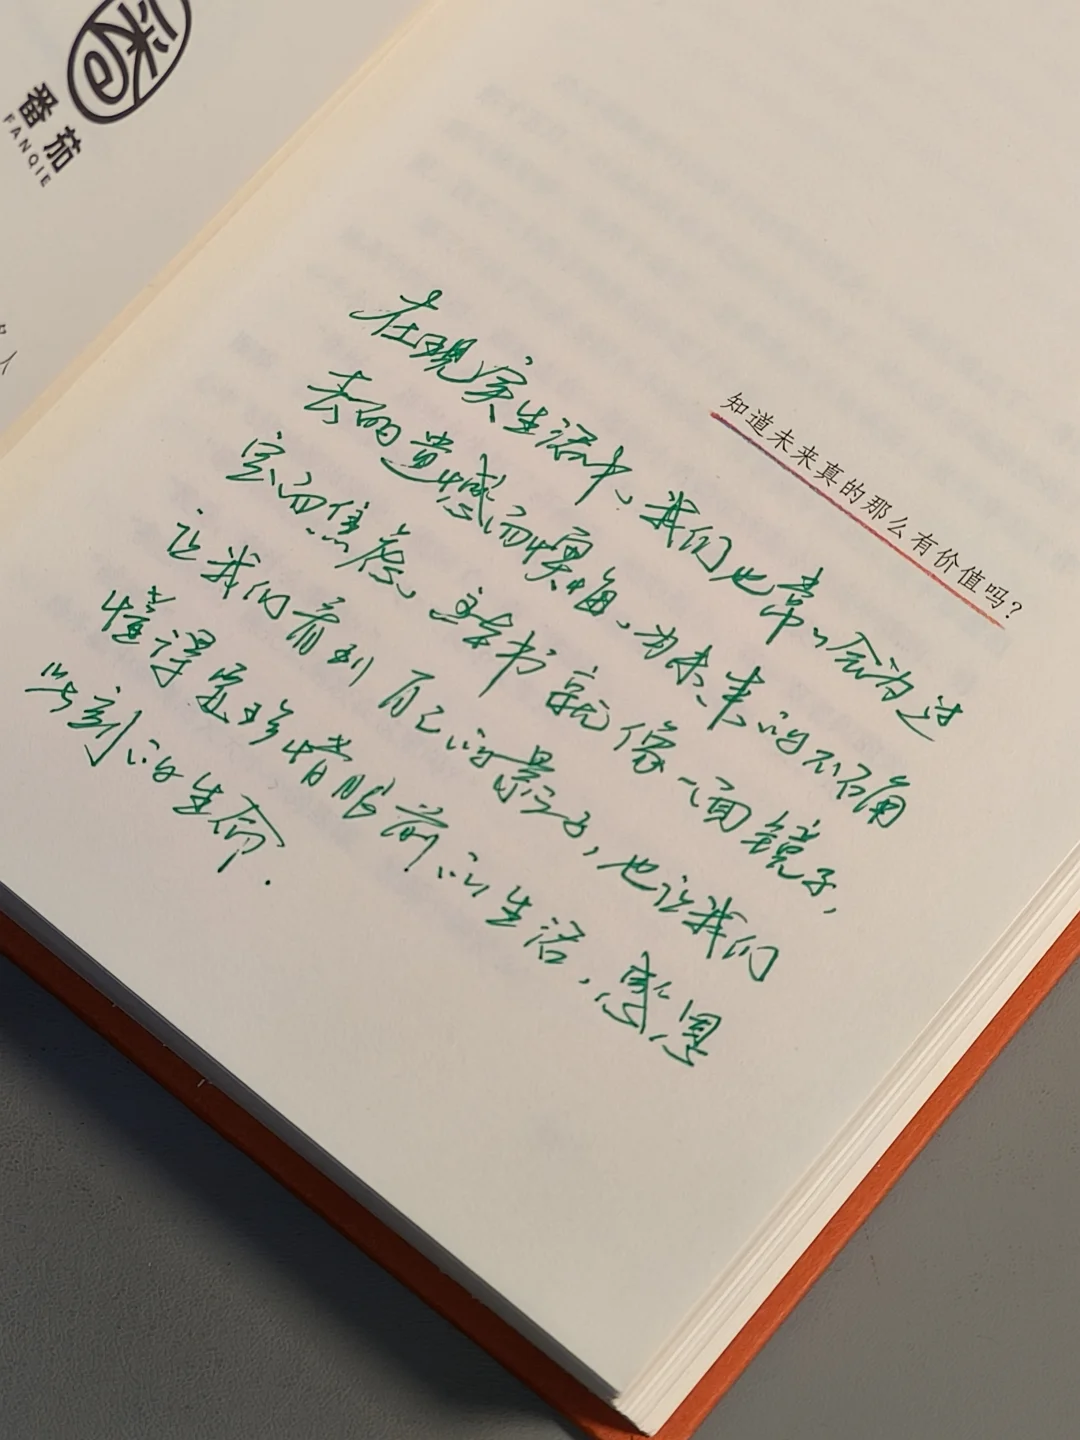 番茄
FANQIE
人
知道未来真的那么有价值吗？
在现实生活中、我们也常常会为过
去的遗憾而懊悔、为未来的不确
定而焦虑。这本书就像一面镜子，
让我们看到自己的影子，也让我们
懂得要珍惜眼前的生活，感恩
此刻的生命.